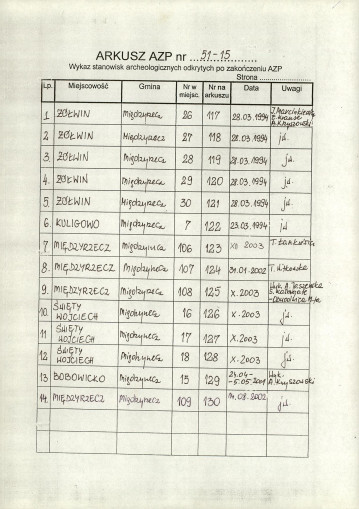 ARKUSZ AZP nr 51-15
Wykaz stanowisk archeologicznych odkrytych po zakończeniu AZP
Strona
Lp. Miejscowość Gmina Nr w miejsc. Nr na arkuszu Data Uwagi
1 ŻÓŁWIN Międzyrzecz 26 117 28.03.1994
2 ŻÓŁWIN Międzyrzecz 27 118 28.03.1994 jw.
3. ŻÓŁWIN Międzyrzecz 28 119 28.03.1994 jw.
4. ŻÓŁWIN Międzyrzecz 29 120 28.03.1994 jw.
5. ŻÓŁWIN Międzyrzecz 30 121 28.03.1994 jw.
6. KULIGOWO Międzyrzecz 7 122 23.03.1994 jw.
7 MIĘDZYRZECZ Międzyrzecz 106 123 XII 2003 T.
8. MIĘDZYRZECZ Międzyrzecz 107 124 31.01.2002 T.
9. MIĘDZYRZECZ Międzyrzecz 108 125 X.2003
10. ŚWIĘTY WOJCIECH Międzyrzecz 16 126 X.2003 jw.
11 ŚWIĘTY WOJCIECH Międzyrzecz 17 127 X.2003 jw.
12 ŚWIĘTY WOJCIECH Międzyrzecz 18 128 X.2003 jw.
13 BOBOWICKO Międzyrzecz 15 129 23.04- -5.05.2001 A. Kryszowski
14. MIĘDZYRZECZ Międzyrzecz 109 130 14.08.2002 jw.